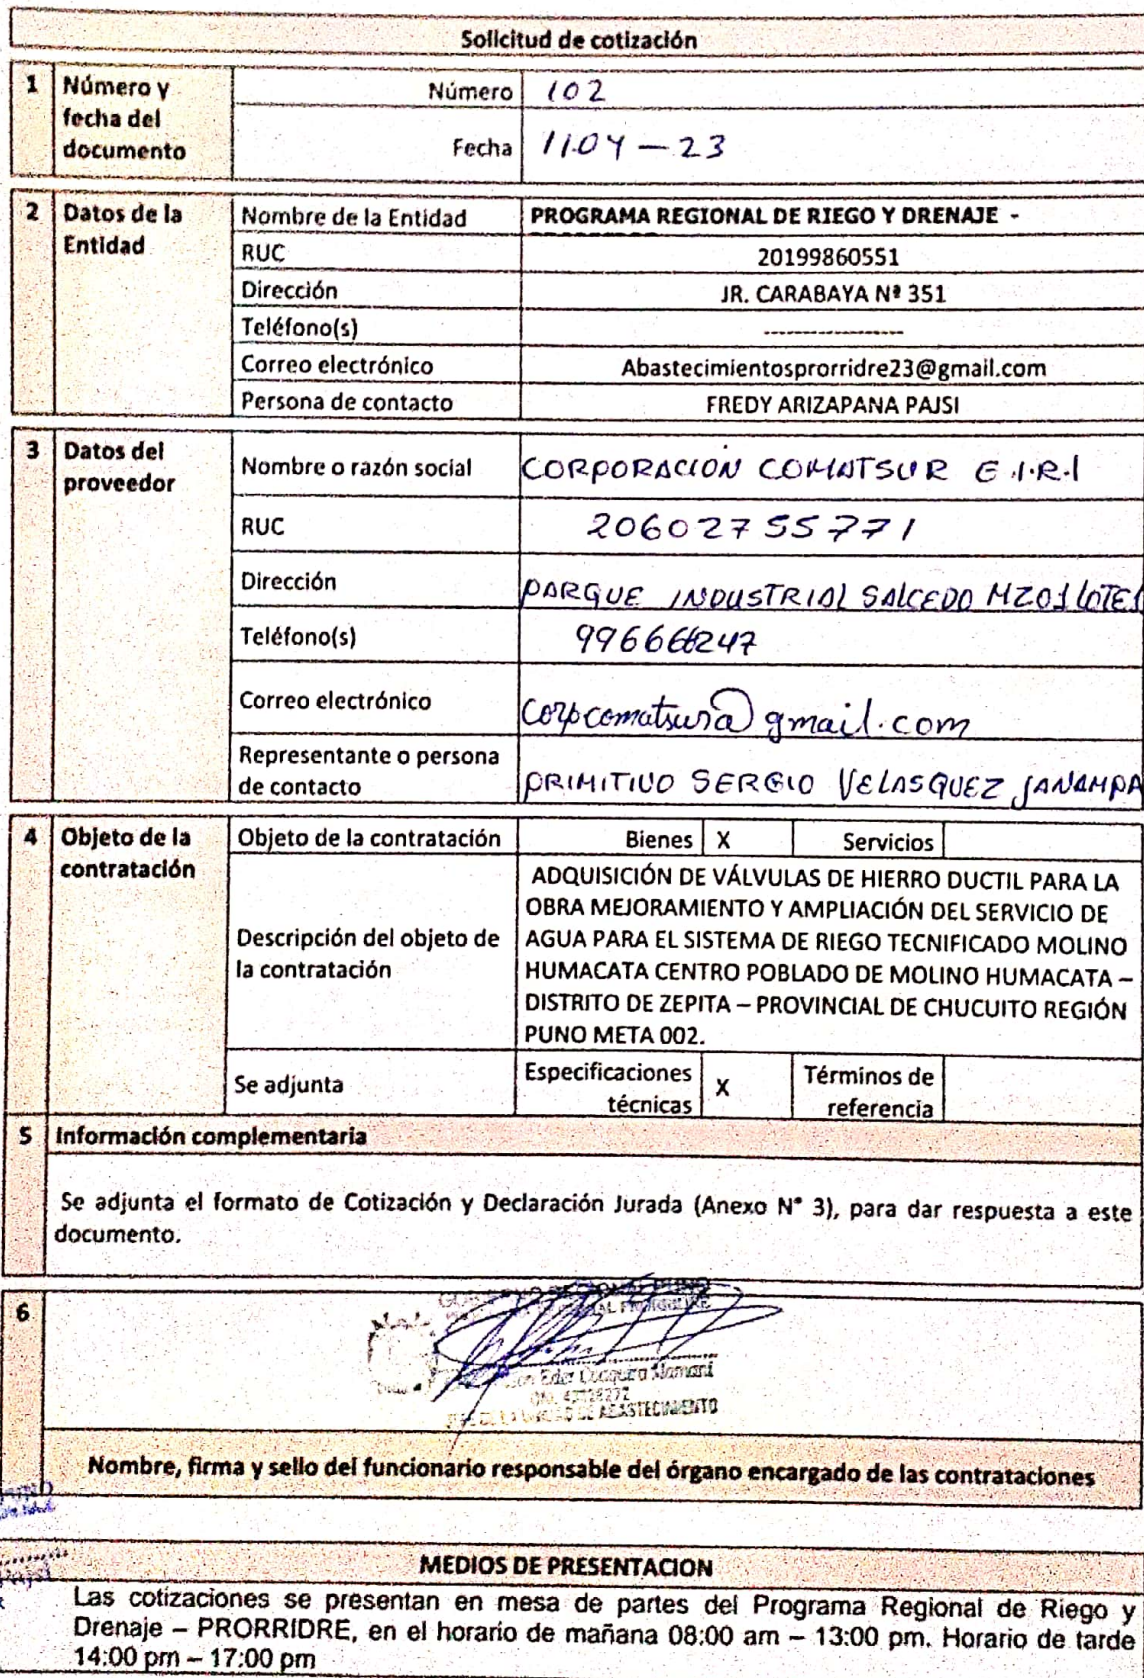 Solicitud de cotización
1 Número y fecha del documento
Número 102
Fecha 11.04-23
2 Datos de la Entidad
Nombre de la Entidad PROGRAMA REGIONAL DE RIEGO Y DRENAJE -
RUC 20199860551
Dirección JR. CARABAYA Nº 351
Teléfono(s) ------------------
Correo electrónico Abastecimientosprorridre23@gmail.com
Persona de contacto FREDY ARIZAPANA PAJSI
3 Datos del proveedor
Nombre o razón social CORPORACION COMATSUR E.I.R.l
RUC 20602755771
Dirección PARQUE INDUSTRIAL SALCEDO MZ01 LOTE1
Teléfono(s) 996666247
Correo electrónico corpcomatsur@gmail.com
Representante o persona de contacto PRIMITIVO SERGIO VELASQUEZ JANAMPA
4 Objeto de la contratación
Objeto de la contratación Bienes X Servicios
Descripción del objeto de la contratación
ADQUISICIÓN DE VÁLVULAS DE HIERRO DUCTIL PARA LA
OBRA MEJORAMIENTO Y AMPLIACIÓN DEL SERVICIO DE
AGUA PARA EL SISTEMA DE RIEGO TECNIFICADO MOLINO
HUMACATA CENTRO POBLADO DE MOLINO HUMACATA –
DISTRITO DE ZEPITA – PROVINCIAL DE CHUCUITO REGIÓN
PUNO META 002.
Se adjunta Especificaciones técnicas X Términos de referencia
5 Información complementaria
Se adjunta el formato de Cotización y Declaración Jurada (Anexo N° 3), para dar respuesta a este
documento.
6
ABASTECIMIENTO
Nombre, firma y sello del funcionario responsable del órgano encargado de las contrataciones
MEDIOS DE PRESENTACION
Las cotizaciones se presentan en mesa de partes del Programa Regional de Riego y
Drenaje – PRORRIDRE, en el horario de mañana 08:00 am – 13:00 pm. Horario de tarde
14:00 pm – 17:00 pm